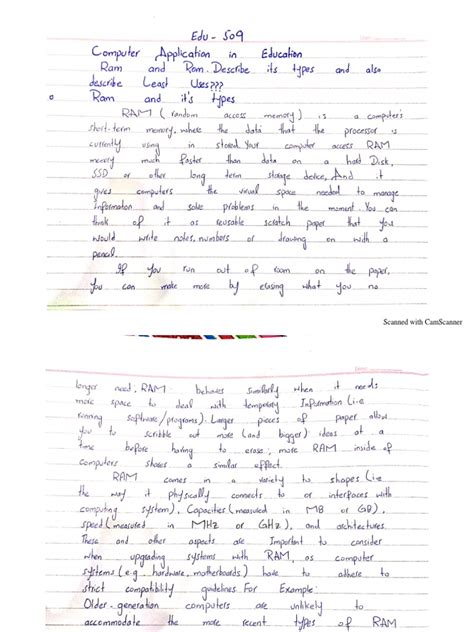 Edu - 509
Computer Application in Education
Ram and Rom. Describe its types and also
describe Least Uses???
Ram and it's types
RAM ( random access memory) is a computers
short-term memory, where the data that the processor is
currently using in stored. Your computer access RAM
memory much faster than data on a hard Disk,
SSD or other long term storage device, And it
gives computers the visual space needed to manage
information and solve problems in the moment. You can
think of it as reusable scratch paper that you
would write notes, numbers or drawing on with a
pencil.
If you run out of room on the paper,
you can make more by erasing what you no
Scanned with CamScanner
longer need. RAM behaves similarly when it needs
more space to deal with temporary Information (i.e
running software/programs). Larger pieces of paper allow
you to scribble out more (and bigger) ideas at a
time before having to erase; more RAM inside of
computers shares a similar effect.
RAM comes in a variety to shapes (i.e
the way it physcally connects to or interfaces with
computing system), Capacities (measured in MB or GB),
speed (measured in MHz or GHz), and architectures.
These and other aspects are Important to consider
when upgrading systems with RAM, as computer
systems (e.g. hardware, motherboards) have to adhere to
strict compatibility guidelines For Example:
Older-generation computers are unlikely to
accommodate the more recent types of RAM